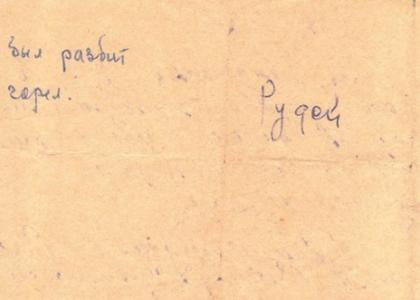 был разбит
горел.
Рудей